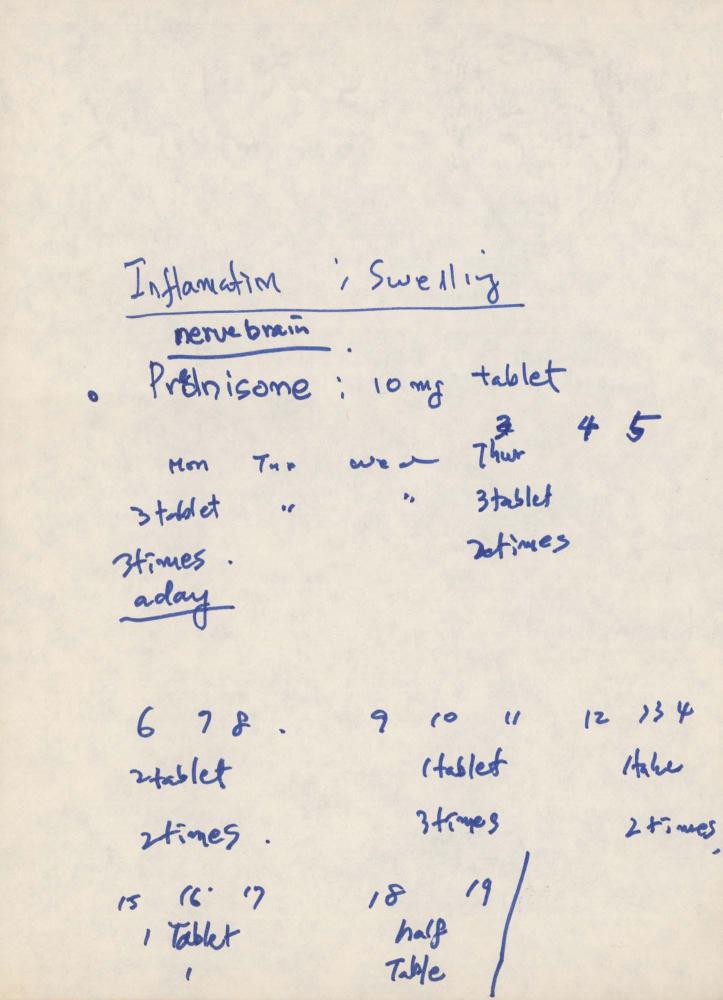 Inflamation ; Swelling
nerve brain .
. Prdnisone ; 10 mg tablet
3 4 5
Mon Tue wed Thur
3 tablet " " 3 tablet
3times . times
a day
6 7 8 . 9 10 11 12 13 4
2 tablet 1 tablet 1
2 times . 3 times 2 times
15 16 17 18 19
1 Tablet half
1 Table